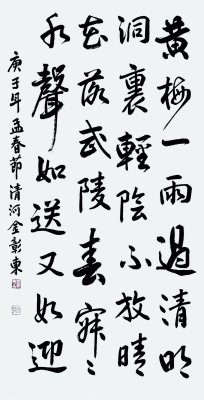 黃梅一雨過清明
洞裏輕陰不放晴
花落武陵春寂〻
水聲如送又如迎
庚子年孟春節清河金彰東